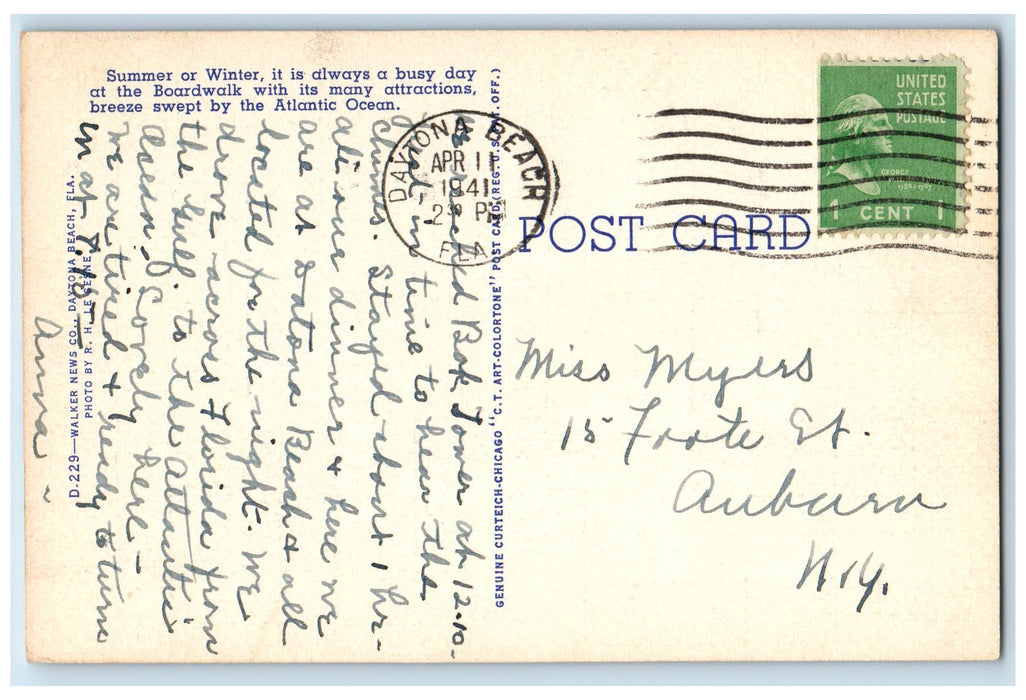 Summer or Winter, it is always a busy day
at the Boardwalk with its many attractions,
breeze swept by the Atlantic Ocean.
D-229—WALKER NEWS CO., DAYTONA BEACH, FLA.
PHOTO BY R. H. LE SESNE
GENUINE CURTEICH-CHICAGO "C.T. ART-COLORTONE" POST CARD (REG. U.S. PAT. OFF.)
POST CARD
DAYTONA BEACH
APR 11
1941
2 30 PM
FLA
UNITED
STATES
POSTAGE
GEORGE
1789-1797
1 CENT 1
Bok Tower at 12.10
in time to hear the
chimes. Stayed about 1 hr-
ate our dinner & here we
are at Datona Beach & all
located for the night. We
drove across Florida from
the Gulf to the Atlantic
ocean. Lovely here-
We are tired & ready to turn
in at 9:15-
Anna-
Miss Myers
15 Foote St.
Auburn
N.Y.